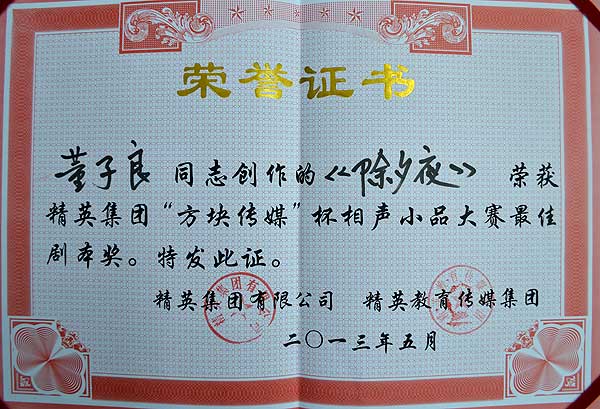 荣誉证书
董子良 同志创作的《除夕夜》 荣获
精英集团“方块传媒”杯相声小品大赛最佳
剧本奖。特发此证。
精英集团有限公司 精英教育传媒集团
二〇一三年五月